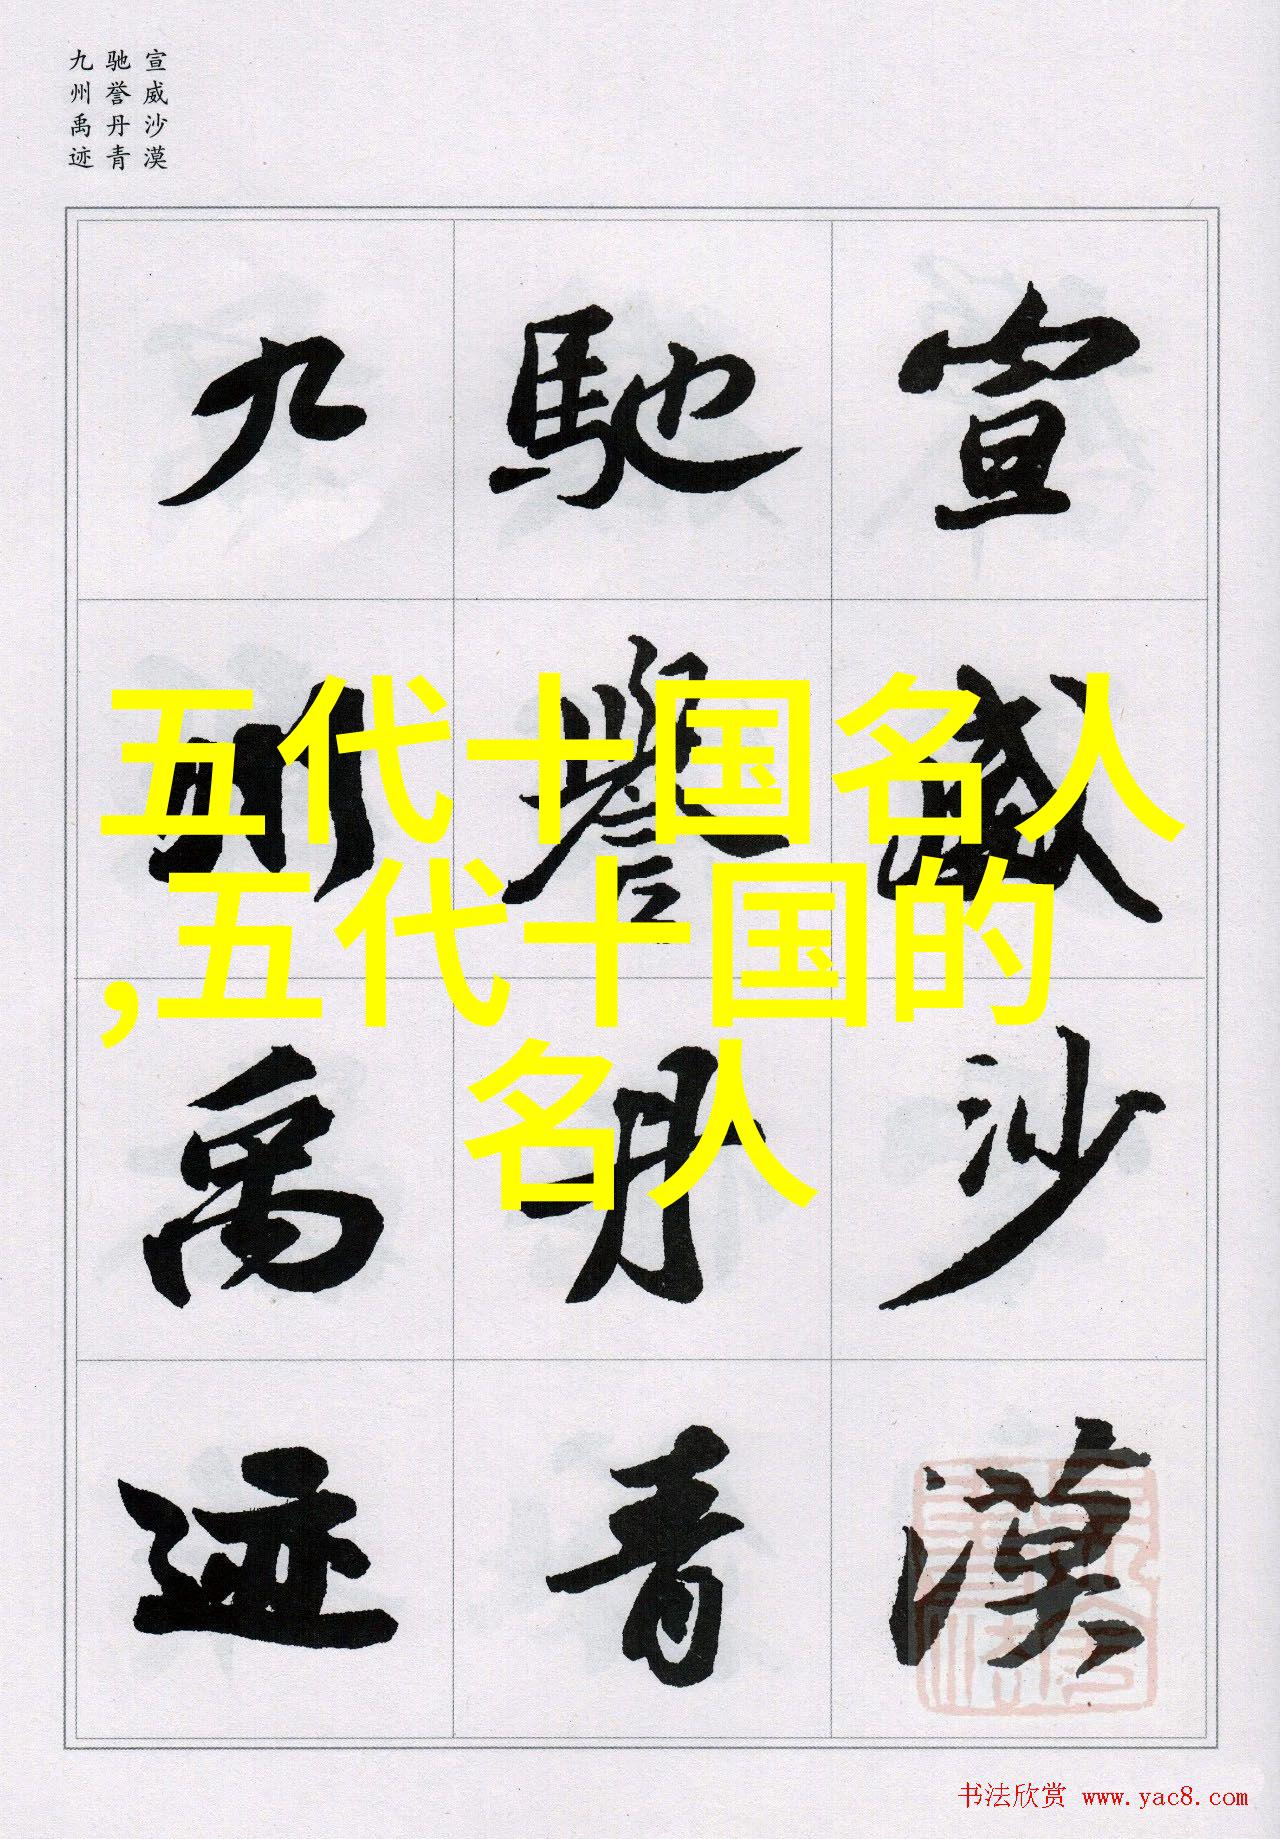 宣威沙漠
驰誉丹青
九州禹迹
宣威沙漠
馳譽丹青
九州禹迹
五代十国名人
,五代十国的
名人
书法欣赏 www.yac8.com